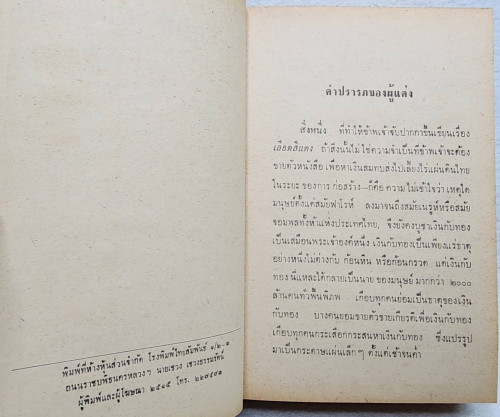 พิมพ์ที่ห้างหุ้นส่วนจำกัด โรงพิมพ์ไทยสัมพันธ์ ๑/๒-๑
ถนนราชบพิธนครหลวงฯ นายเชวง เชวงธรรมรัตน์
ผู้พิมพ์และผู้โฆษณา ๒๕๑๕ โทร. ๒๒๙๔๙๑
คำปรารภของผู้แต่ง
สิ่งหนึ่ง ที่ทำให้ข้าพเจ้าจับปากกาขึ้นเขียนเรื่อง
เลือดสีแดง ถ้าสิ่งนั้นไม่ใช่ความจำเป็นที่ข้าพเจ้าจะต้อง
ขายตัวหนังสือ เพื่อหาเงินสมทบส่งไปเลี้ยงไร่แผ่นดินไทย
ในระยะ ของการ ก่อสร้าง—ก็คือ ความ ไม่เข้าใจว่า เหตุใด
มนุษย์ตั้งแต่สมัยฟาโรห์ ลงมาจนถึงสมัยเนรูห์หรือสมัย
จอมพลทั้งห้าแห่งประเทศไทย, จึงยังคงบูชาเงินกับทอง
เป็นเสมือนพระเจ้าองค์หนึ่ง เงินกับทองเป็นเพียงแร่ธาตุ
อย่างหนึ่งไม่ต่างกับ ก้อนหิน หรือก้อนกรวด แต่เงินกับ
ทอง นี่แหละได้กลายเป็นนาย ของมนุษย์ มากกว่า ๒๐๐๐
ล้านคนทั่วพื้นพิภพ — เกือบทุกคนยอมเป็นธาตุของเงิน
กับทอง บางคนยอมขายตัวขายเกียรติเพื่อเงินกับทอง
เกือบทุกคนกระเสือกกระสนหาเงินกับทอง ซึ่งแปรรูป
มาเป็นกระดาษแผ่นเล็กๆ ตั้งแต่เช้าจนค่ำ